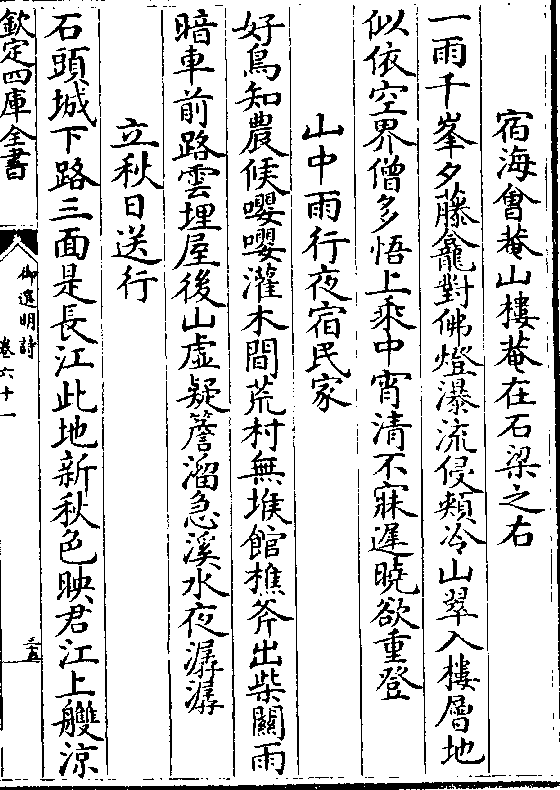 宿海會菴山樓菴在石梁之右
一雨千峯夕藤龕對佛燈瀑流侵頰冷山翠入樓層地
似依空界僧多悟上乘中宵清不寐遲曉欲重登
山中雨行夜宿民家
好鳥知農候嚶嚶灌木間荒村無堠館樵斧出柴關雨
暗車前路雲埋屋後山虛疑簷溜急溪水夜潺潺
立秋日送行
石頭城下路三面是長江此地新秋色映君江上艭涼
欽定四庫全書
御選明詩
卷六十一
三五